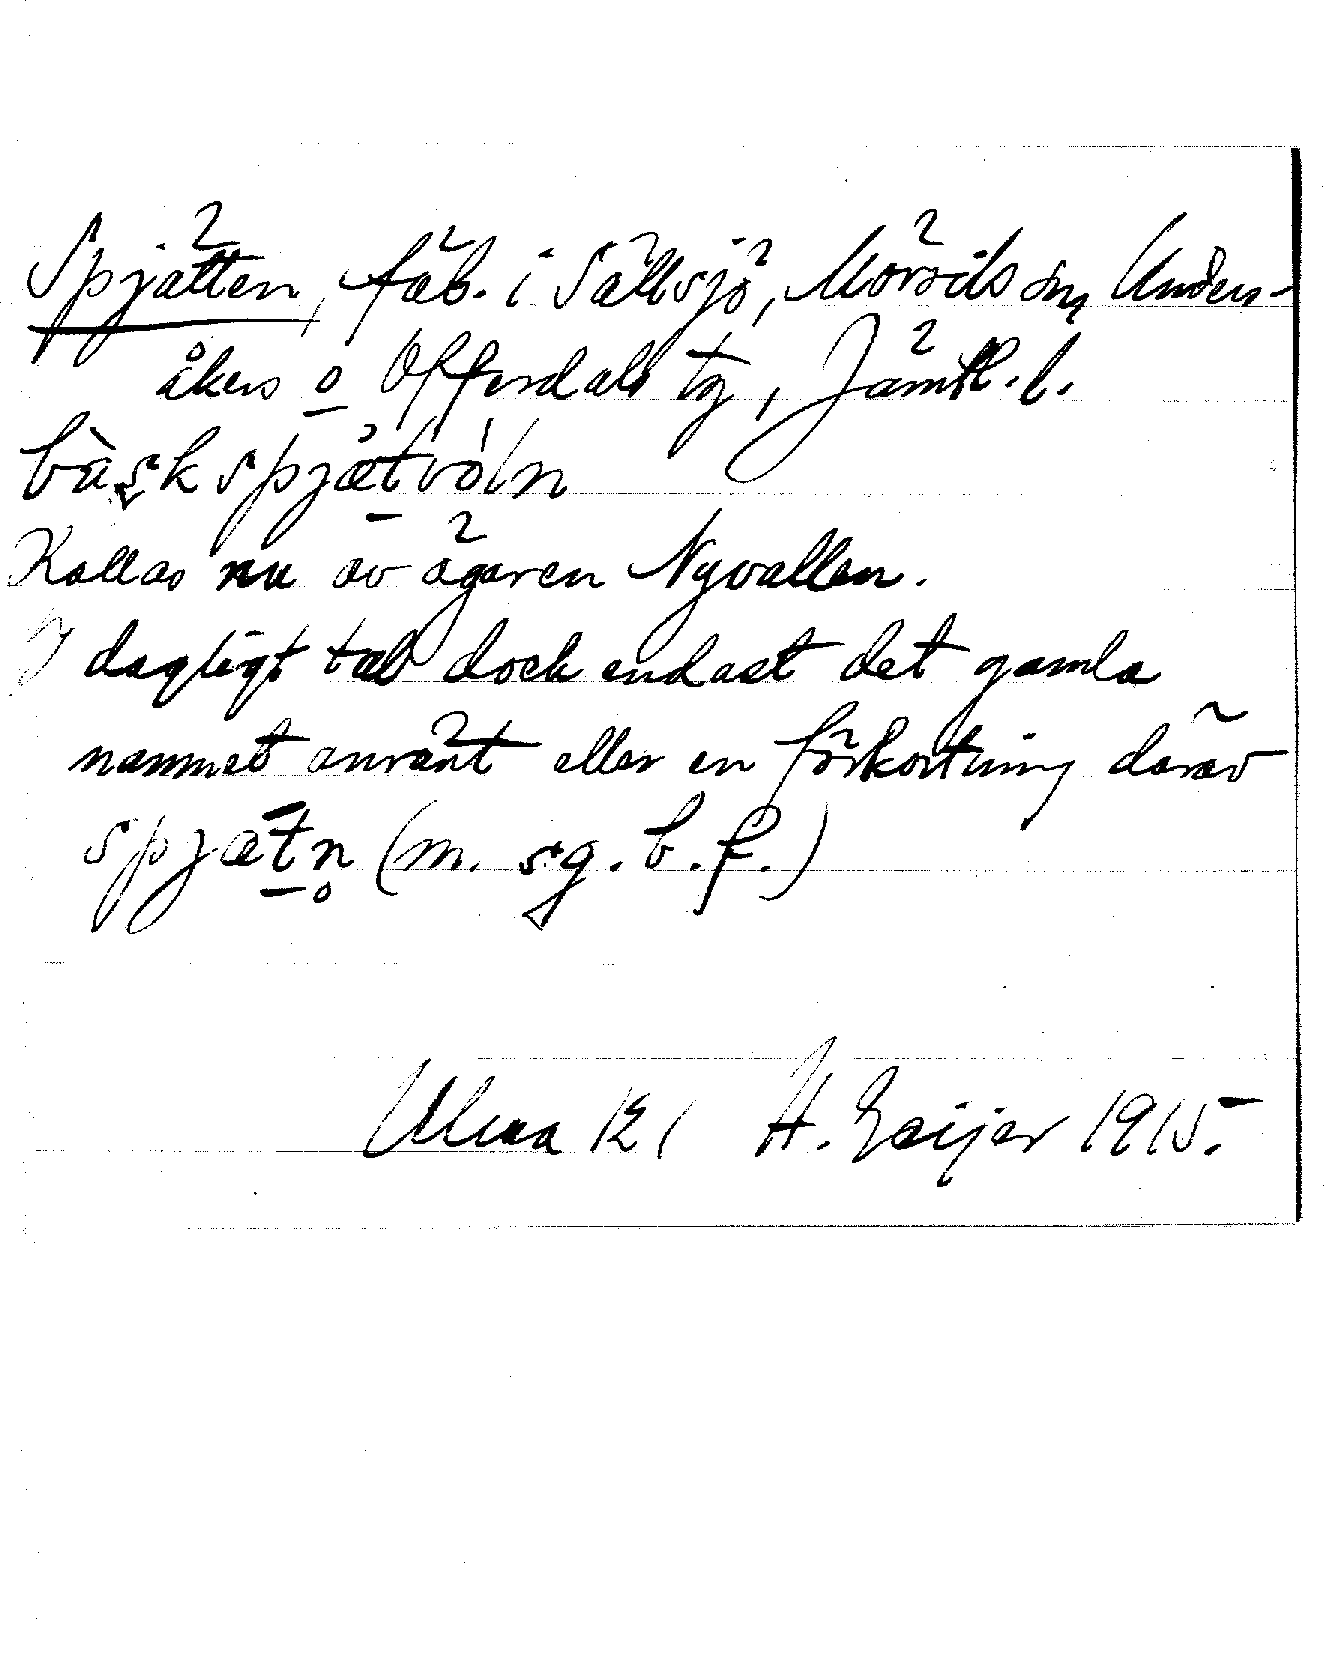 Spjätten, fäb. i Sällsjö, Mörsils sn, Unders-
åkers o Offerdals tg, Jämtl. l.
bàskspjætvóln
Kallas nu av ägaren Nyvallen.
I dagligt tal dock endast det gamla
namnet använt eller en förkortning därav
spjætn̥ (m. sg. b. f.)
121 H. Geijer 1915.